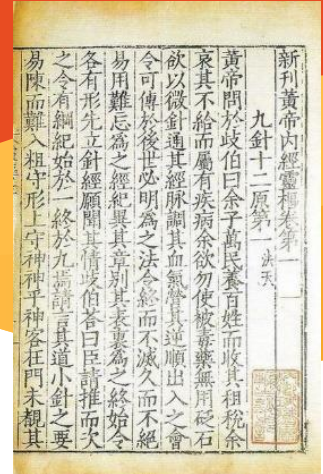 新刊黃帝内經靈樞卷第一
九針十二原第一 法天
黃帝問於歧伯曰余子萬民養百姓而收其租稅余
哀其不給而屬有疾病余欲勿使被毒藥無用砭石
欲以微針通其經脉調其血氣營其逆順出入之會
令可傳於後世必明爲之法令終而不滅久而不絕
易用難忘爲之經紀異其章别其表裏爲之終始令
各有形先立針經願聞其情歧伯荅曰臣請推而次
之令有綱紀始於一終於九焉請言其道小針之要
易陳而難入粗守形上守神神乎神客在門未覩其